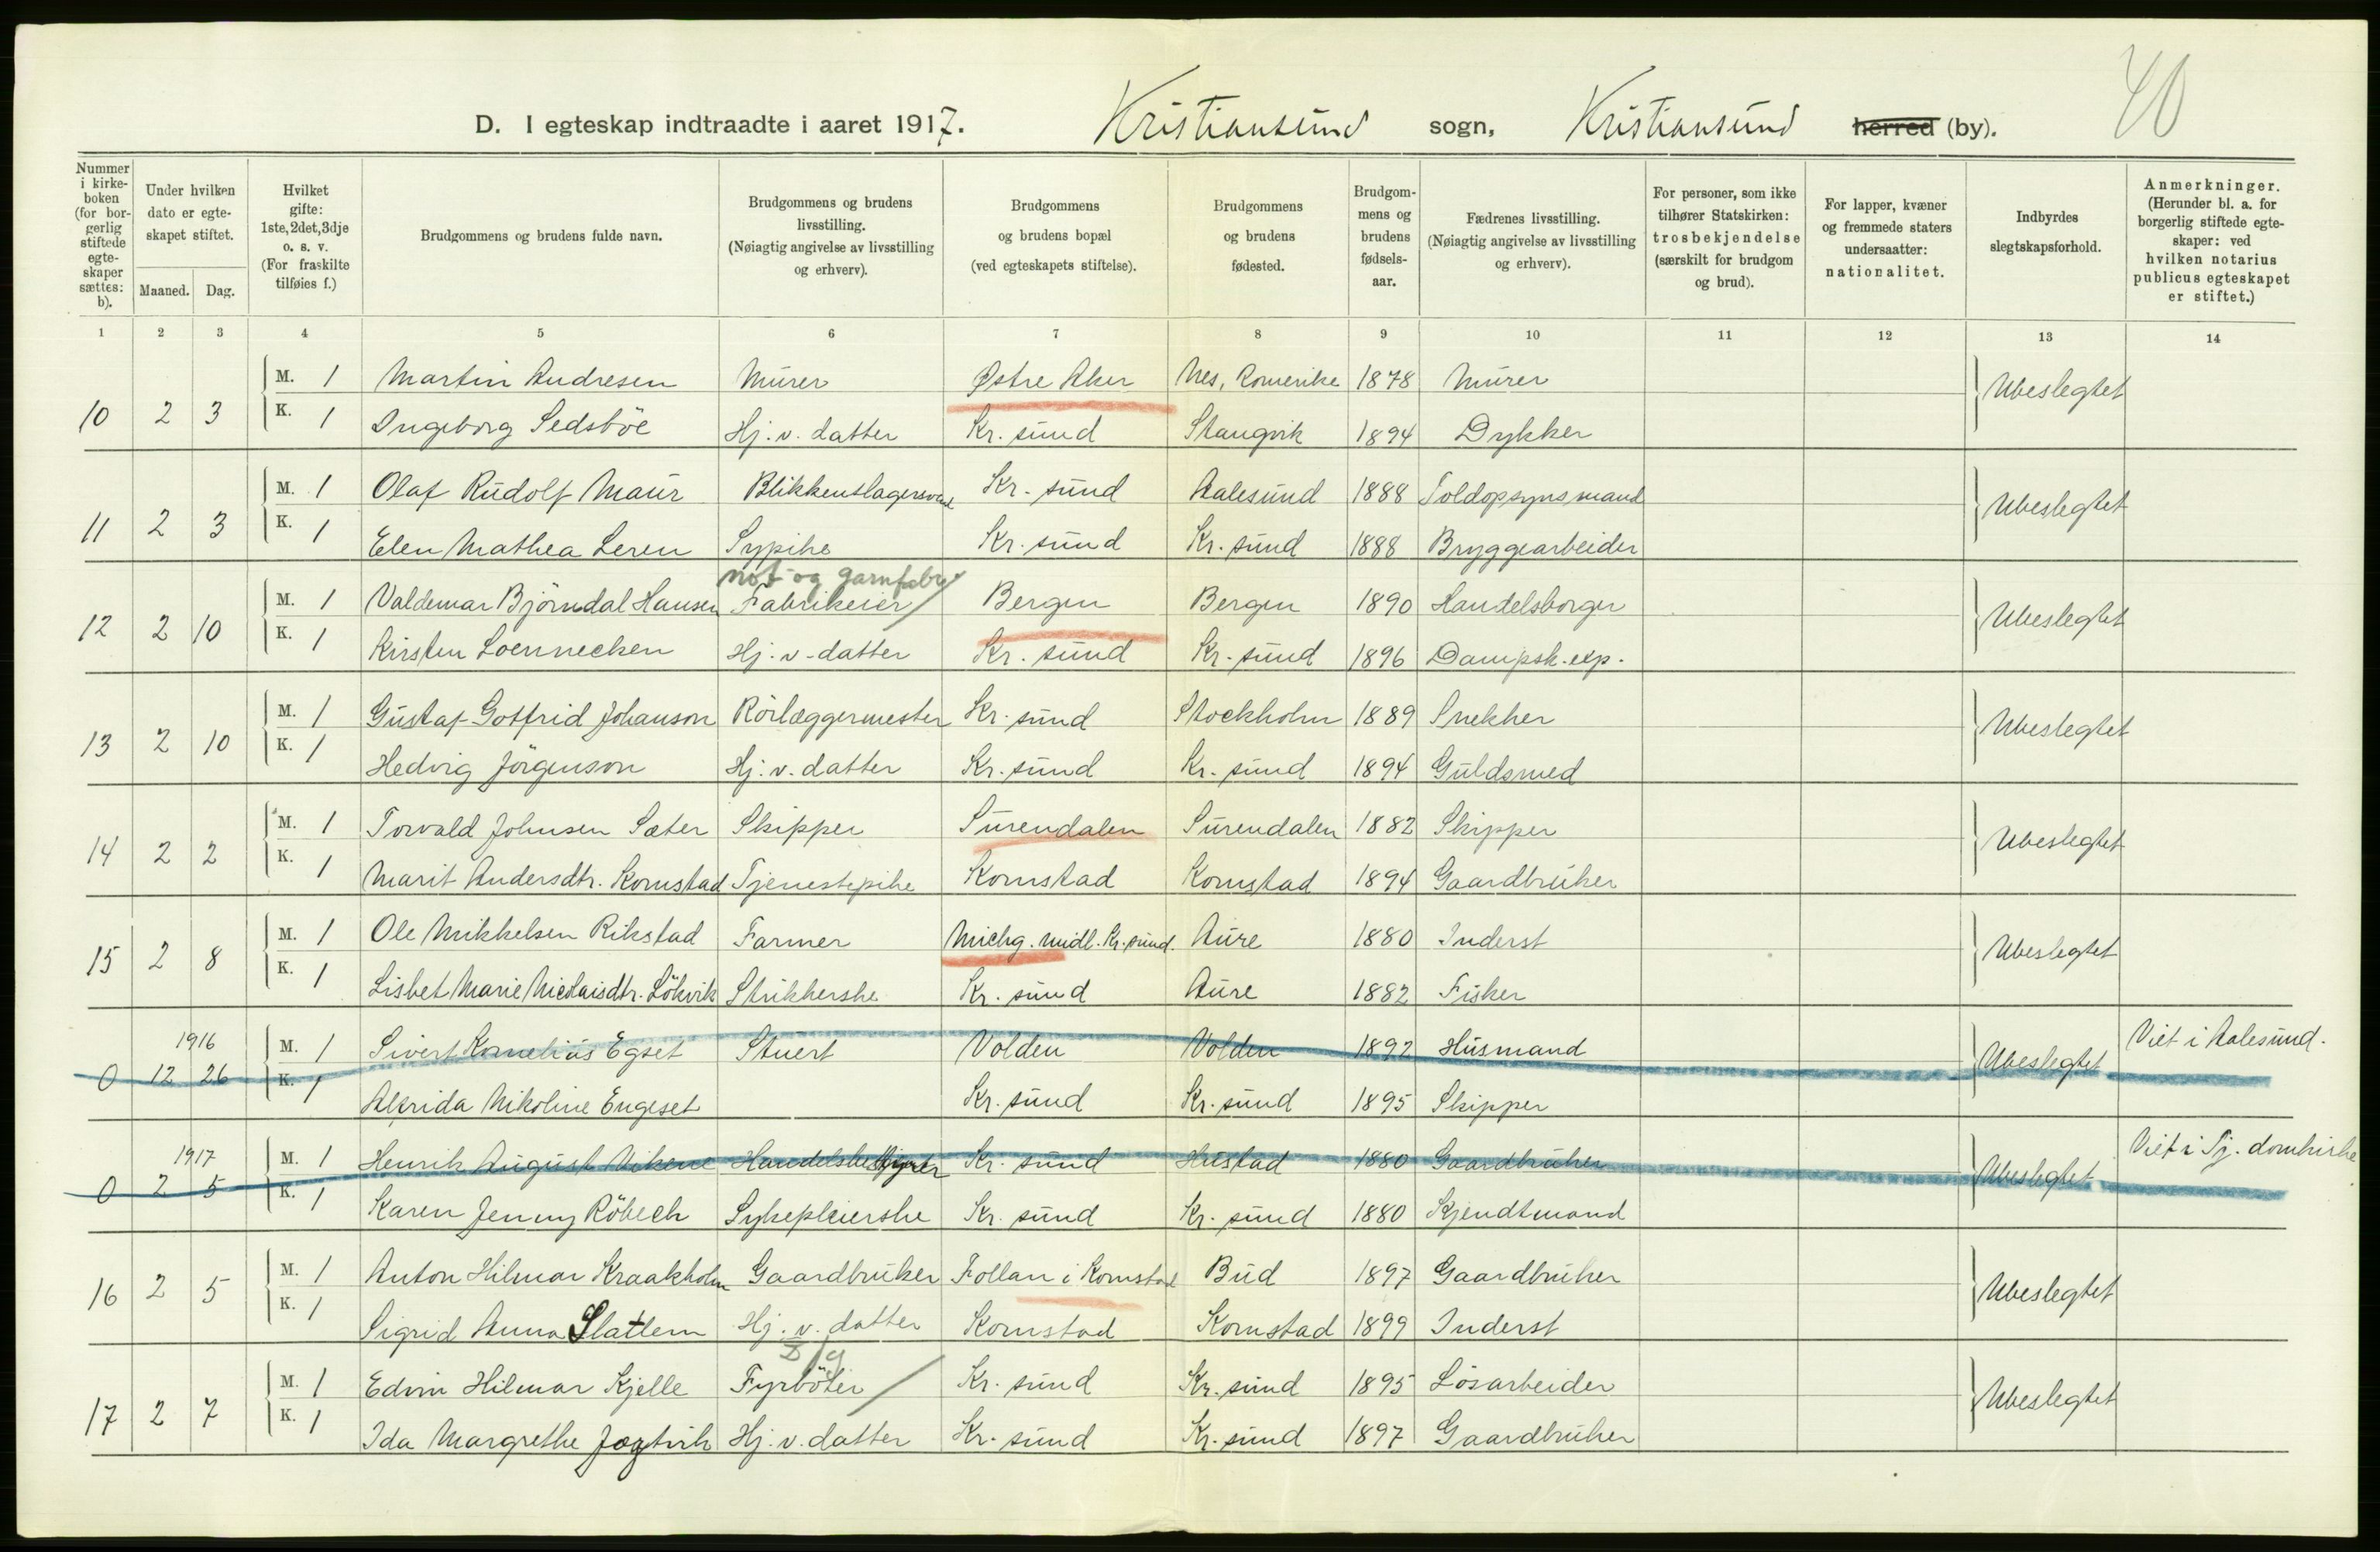 40
D. I egteskap indtraadte i aaret 1917. Kristiansund sogn, Kristiansund herred (by).
Nummer i kirke-boken (for bor-gerlig stiftede egte-skaper sættes: b).
Under hvilken dato er egte-skapet stiftet.
Maaned. Dag.
Hvilket gifte: 1ste, 2det, 3dje o. s. v. (For fraskilte tilføies f.)
Brudgommens og brudens fulde navn.
Brudgommens og brudens livsstilling. (Nøiagtig angivelse av livsstilling og erhverv).
Brudgommens og brudens bopæl (ved egteskapets stiftelse).
Brudgommens og brudens fødested.
Brudgom-mens og brudens fødsels-aar.
Fædrenes livsstilling. (Nøiagtig angivelse av livsstilling og erhverv).
For personer, som ikke tilhører Statskirken: trosbekjendelse (særskilt for brudgom og brud).
For lapper, kvæner og fremmede staters undersaatter: nationalitet.
Indbyrdes slegtskapsforhold.
Anmerkninger. (Herunder bl. a. for borgerlig stiftede egte-skaper: ved hvilken notarius publicus egteskapet er stiftet.)
1 2 3 4 5 6 7 8 9 10 11 12 13 14
M. 1 Martin Andresen Murer Østre Aker Nes, Romerike 1878 Murer
10 2 3 Ubeslegtet
K. 1 Ingeborg Sedsböe Hj. v. datter Kr. sund Stangvik 1894 Dykker
M. 1 Olaf Rudolf Maur Blikkenslagersvend Kr. sund Aalesund 1888 Toldopsynsmand
11 2 3 Ubeslegtet
K. 1 Elen Mathea Leren Sypike Kr. sund Kr. sund 1888 Bryggearbeider
not- og garnfabr.
M. 1 Valdemar Björndal Hansen Fabrikeier Bergen Bergen 1890 Handelsborger
12 2 10 Ubeslegtet
K. 1 Kirsten Loennecken Hj. v. datter Kr. sund Kr. sund 1896 Dampsk. exp.
M. 1 Gustaf Gotfrid Johanson Rörlæggermester Kr. sund Stockholm 1889 Snekker
13 2 10 Ubeslegtet
K. 1 Hedvig Jörgenson Hj. v. datter Kr. sund Kr. sund 1894 Guldsmed
M. 1 Torvald Johnsen Sæter Skipper Surendalen Surendalen 1882 Skipper
14 2 2 Ubeslegtet
K. 1 Marit Andersdtr. Kornstad Tjenestepike Kornstad Kornstad 1894 Gaardbruker
M. 1 Ole Mikkelsen Rikstad Farmer Michg. midl. Kr. sund. Aure 1880 Inderst
15 2 8 Ubeslegtet
K. 1 Lisbet Marie Nicolaisdtr. Lökvik Strikkerske Kr. sund Aure 1882 Fisker
1916
M. 1 Sivert Kornelius Egset Stuert Volden Volden 1892 Husmand Viet i Aalesund.
0 12 26 Ubeslegtet
K. 1 Alfrida Nikoline Engeset Kr. sund Kr. sund 1895 Skipper
1917
M. 1 Henrik August Vikene Handelsbestyrer Kr. sund Hustad 1880 Gaardbruker Viet i Tj. domkirke
0 2 5 Ubeslegtet
K. 1 Karen Jenny Röbech Sykepleierske Kr. sund Kr. sund 1880 Kjendtmand
M. 1 Anton Hilmar Kraakholm Gaardbruker Follan i Kornstad Bud 1897 Gaardbruker
16 2 5 Ubeslegtet
K. 1 Sigrid Anna Slatlem Hj. v. datter Kornstad Kornstad 1899 Inderst
M. 1 Edvin Hilmar Kjelle Fyrböter Kr. sund Kr. sund 1895 Lösarbeider
17 2 7 Ubeslegtet
K. 1 Ida Margrethe Jogtvik Hj. v. datter Kr. sund Kr. sund 1897 Gaardbruker